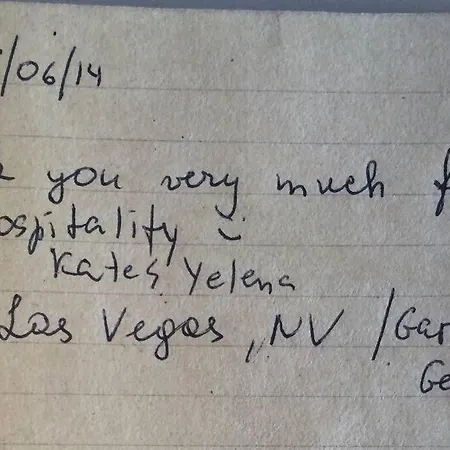 /06/14
you very much f
ospitality
Kates Yelena
Las Vegas, NV /Gar
Ge